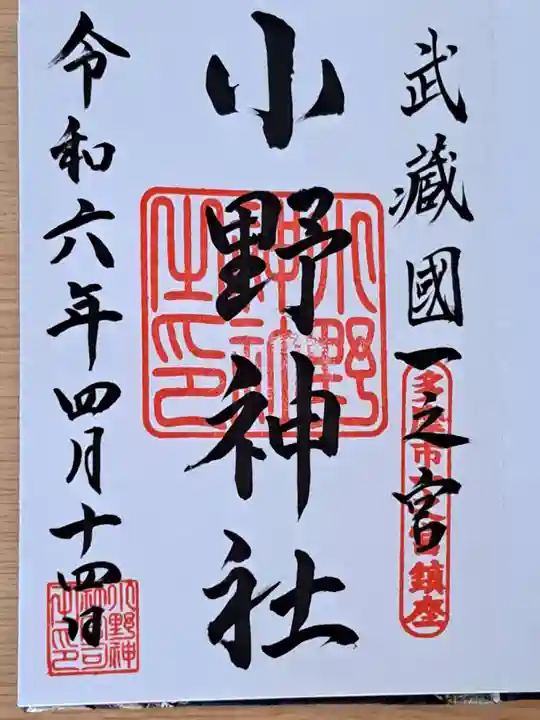 武蔵國一之宮
多摩市一之宮鎮座
小野神社
小野神社之印
令和六年四月十四日
小野神社宮司之印